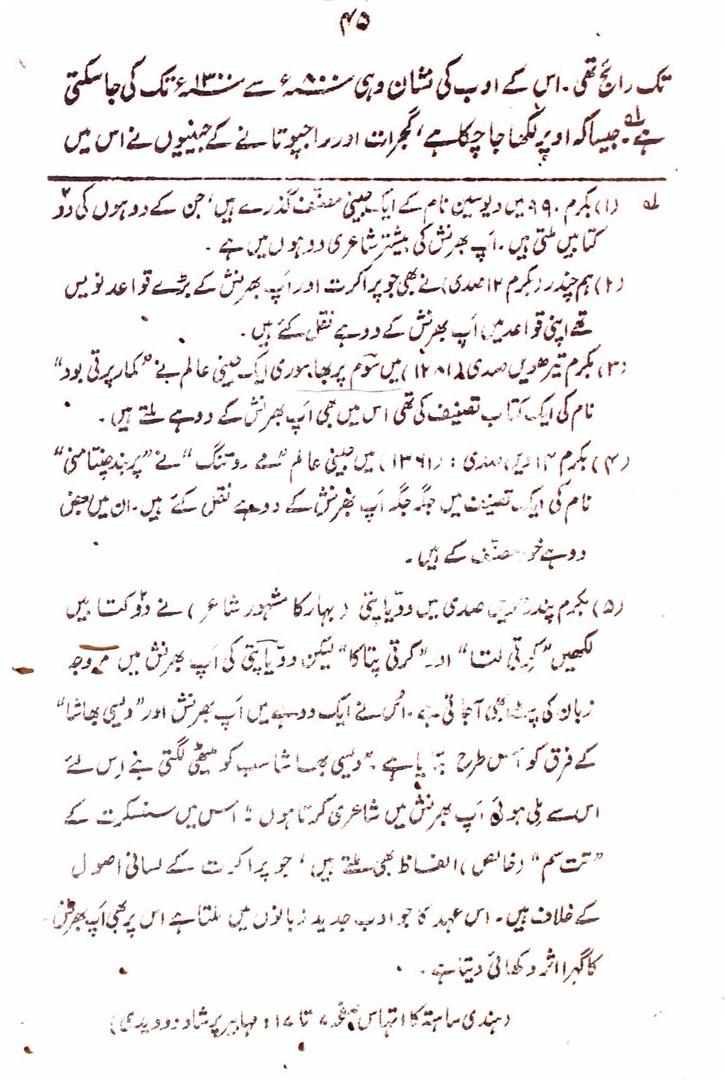 ۴۵
تک رائج تھی۔ اس کے ادب کی نشان دہی سنہ ۸۰۰ء سے سنہ ۱۳۰۰ء تک کی جا سکتی
ہے۔ جیسا کہ اوپر لکھا جا چکا ہے، گجرات اور راجپوتانے کے جینیوں نے اس میں
لہ (۱) بکرم ۹۹۰ میں دیوسین نام کے ایک جینی مصنف گذرے ہیں، جن کے دوہوں کی دو
کتابیں ملتی ہیں۔ اَپ بھرنش کی بیشتر شاعری دوہوں میں ہے۔
(۲) ہم چندر (بکرم ۱۲ صدی) نے بھی جو پراکرت اور اَپ بھرنش کے بڑے قواعد نویس
تھے اپنی قواعد میں اَپ بھرنش کے دوہے نقل کئے ہیں۔
(۳) بکرم تیرھویں صدی (۱۲۸۱) میں سوم پربھا سوری ایک جینی عالم نے "کمار پرتی بود"
نام کی ایک کتاب تصنیف کی تھی اس میں بھی اَپ بھرنش کے دوہے ملتے ہیں۔
(۴) بکرم ۱۴ ویں صدی: (۱۳۶۱) میں جینی عالم "مے روتنگ" نے "پربندھ چنتامنی"
نام کی ایک تصنیف میں جگہ جگہ اَپ بھرنش کے دوہے نقل کئے ہیں۔ ان میں بعض
دوہے خود مصنف کے ہیں۔
(۵) بکرم پندرھویں صدی میں ودیاپتی (بہار کا مشہور شاعر) نے دو کتابیں
لکھیں "کرتی لتا" اور "کرتی پتاکا" لیکن ودیاپتی کی اَپ بھرنش میں مروجہ
زبان کی پٹ بھی آ جاتی ہے۔ اس نے ایک دوہے میں اَپ بھرنش اور "دیسی بھاشا"
کے فرق کو اس طرح بتایا ہے "دیسی بھاشا سب کو میٹھی لگتی ہے اس لئے
اس سے ملی ہوئی اَپ بھرنش میں شاعری کرتا ہوں" اس میں سنسکرت کے
"تت سم" (خالص) الفاظ بھی ملتے ہیں، جو پراکرت کے لسانی اصول
کے خلاف ہیں۔ اس عہد کا جو ادب جدید زبانوں میں ملتا ہے اس پر بھی اَپ بھرنش
کا گہرا اثر دکھائی دیتا ہے۔
(ہندی ساہتہ کا اتہاس صفحہ ۷ تا ۱۷: مہابیر پرشاد دوویدی)